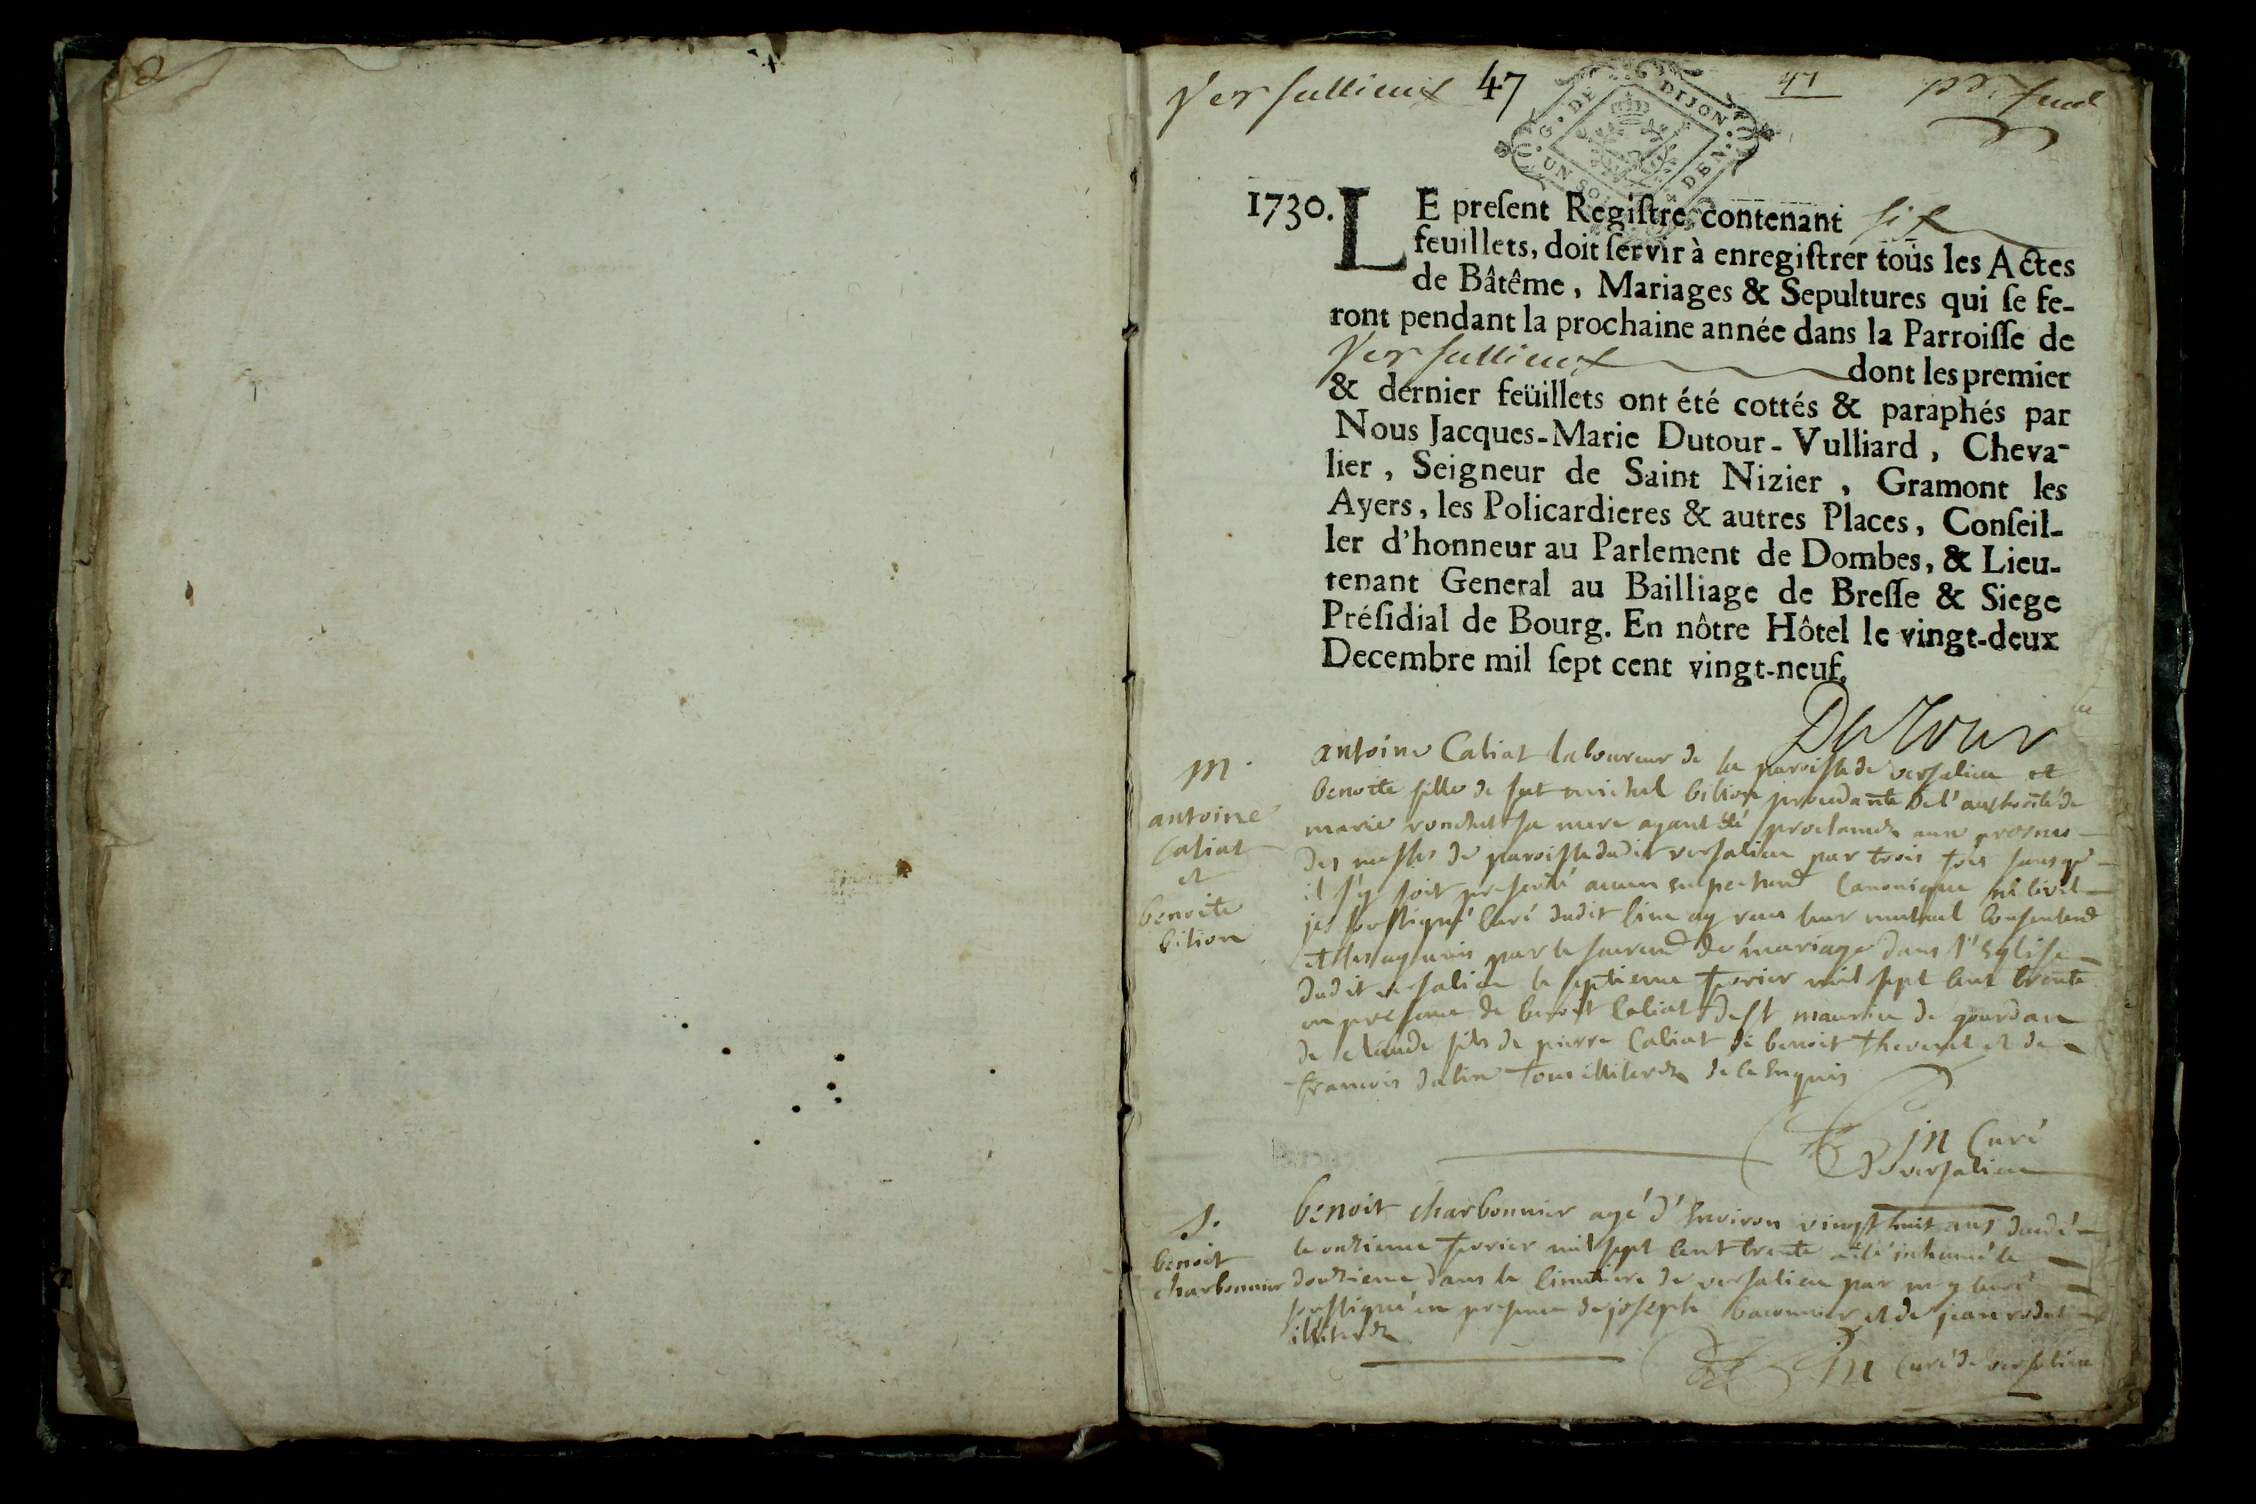 Versallieux 47 47 pr. feuil
G. DE DIJON.
UN SOL DEN.
1730. LE preſent Regiſtre contenant six
feuillets, doit ſervir à enregiſtrer tous les Actes
de Bâtême, Mariages & Sepultures qui ſe fe-
ront pendant la prochaine année dans la Parroiſſe de
Versallieux dont les premier
& dernier feüillets ont été cottés & paraphés par
Nous Jacques-Marie Dutour-Vulliard, Cheva-
lier, Seigneur de Saint Nizier, Gramont les
Ayers, les Policardieres & autres Places, Conſeil-
ler d'honneur au Parlement de Dombes, & Lieu-
tenant General au Bailliage de Breſſe & Siege
Préſidial de Bourg. En nôtre Hôtel le vingt-deux
Decembre mil ſept cent vingt-neuf.
DuTour
m.
antoine
Caliat
et
benoite
bilion
antoine Caliat laboureur de la paroisse de versalieu et
benoite fille de fut michel bilion procedante de l'authorité de
marie ronchet sa mere ayant été proclamez aux prosnes
des messes de paroisse dudit versalieu par trois fois sans qu'
il s'y soit presenté aucun empechemt Canonique ni civil
je soussigné Curé dudit lieu ay receu leur mutuel Consentemt
et les ay unis par le sacremt de mariage dans l'Eglise
dudit versalieu le septieme fevrier mil sept cent trente
en presence de benoit Caliat de st maurice de gourdan
de claude fils de pierre Caliat de benoit thevenet et de
francois dalin tous illiterez de ce Enquis
Curé
de versalieu
S.
benoit
charbonnier
benoit charbonnier agé d'Environ vingt huit ans decedé
le onzieme fevrier mil sept cent trente a été inhumé le
douzieme dans le Cimetiere de versalieu par moy Curé
soussigné en presence de joseph baconnier et de jean rodet
illiterez
Curé de versalieu